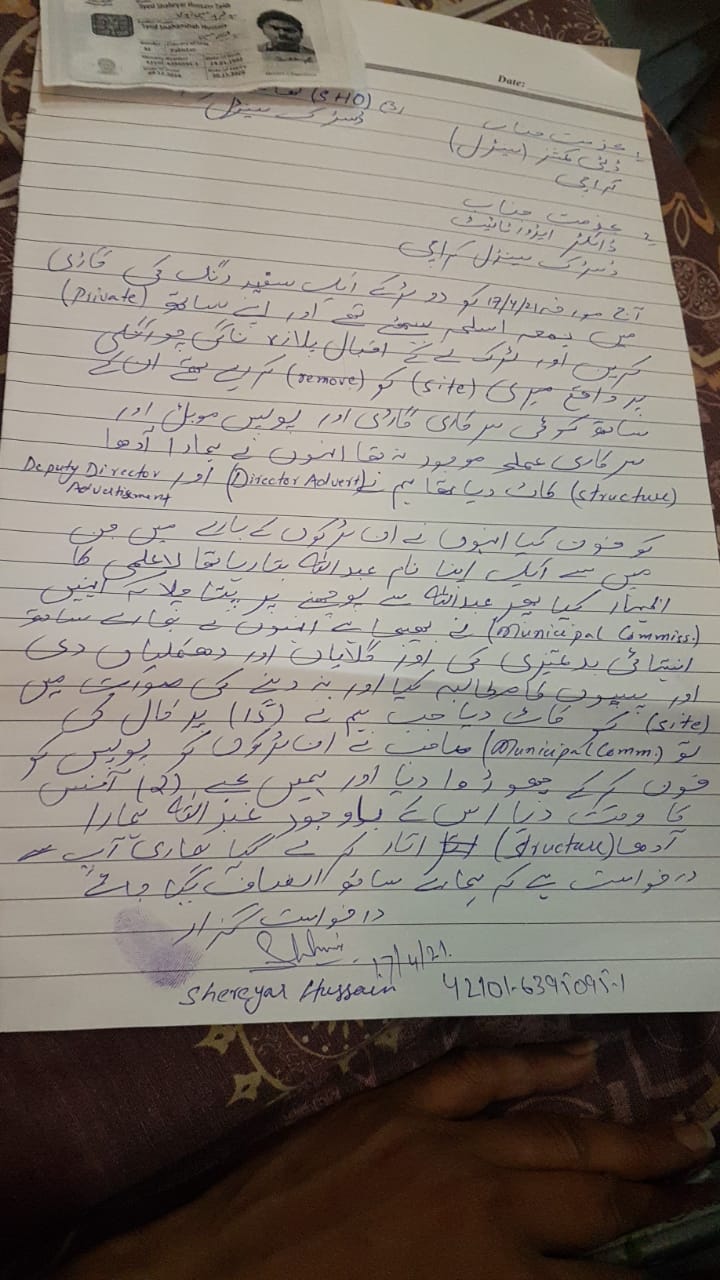 Syed Shaheryar Hussain Zaidi
Syed Shahanshah Hussain
M Pakistan
Date:
(3) (SHO)
ڈسٹرکٹ سینٹرل
1 بخدمت جناب
ڈپٹی کمشنر (سینٹرل)
کراچی
2 بخدمت جناب
ڈسٹرکٹ سینٹرل کراچی
آج مورخہ 17/4/21 کو دو لڑکے ایک سفید رنگ کی گاڑی
میں بمعہ اسلحہ تھے اور اپنے ساتھ (Private)
کرین اور ٹرک لے کے اقبال پلازہ ناگن چورنگی
پر واقع میری (site) کو (remove) کر رہے تھے ان کے
ساتھ کوئی سرکاری گاڑی اور پولیس موبائل اور
سرکاری عملہ موجود نہ تھا انہوں نے ہمارا آدھا
(structure) کاٹ دیا تھا ہم نے (Director Advert) اور Deputy Director
Advertisement
کو فون کیا انہوں نے ان لڑکوں کے بارے میں جن
میں سے ایک اپنا نام عبداللہ بتا رہا تھا لاعلمی کا
اظہار کیا پھر عبداللہ سے پوچھنے پر پتا چلا کہ انہیں
(Municipal Commiss.) نے بھیجا ہے انہوں نے ہمارے ساتھ
انتہائی بدتمیزی کی اور گالیاں اور دھمکیاں دی
اور پیسوں کا مطالبہ کیا اور نہ دینے کی صورت میں
(site) کو کاٹ دیا جب ہم نے (15) پر کال کی
تو (Municipal Comm.) صاحب نے ان لڑکوں کو پولیس کو
فون کرکے چھوڑوا دیا اور ہمیں (2) آفس
کا وقت دیا اس کے باوجود عبداللہ ہمارا
آدھا (structure) اتار کر لے گیا ہماری آپ سے
درخواست ہے کہ ہمارے ساتھ انصاف کیا جائے
درخواست گزار
17/4/21.
Shereyar Hussain 42101-6395095-1